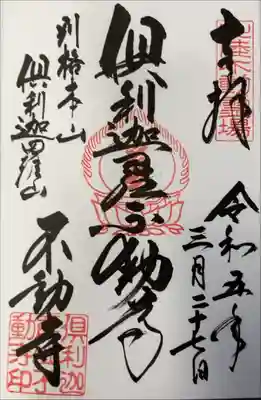 奉拝
令和五年
三月二十七日
倶利迦羅不動尊
別格本山
倶利迦羅山
不動寺
倶利迦
動寺印